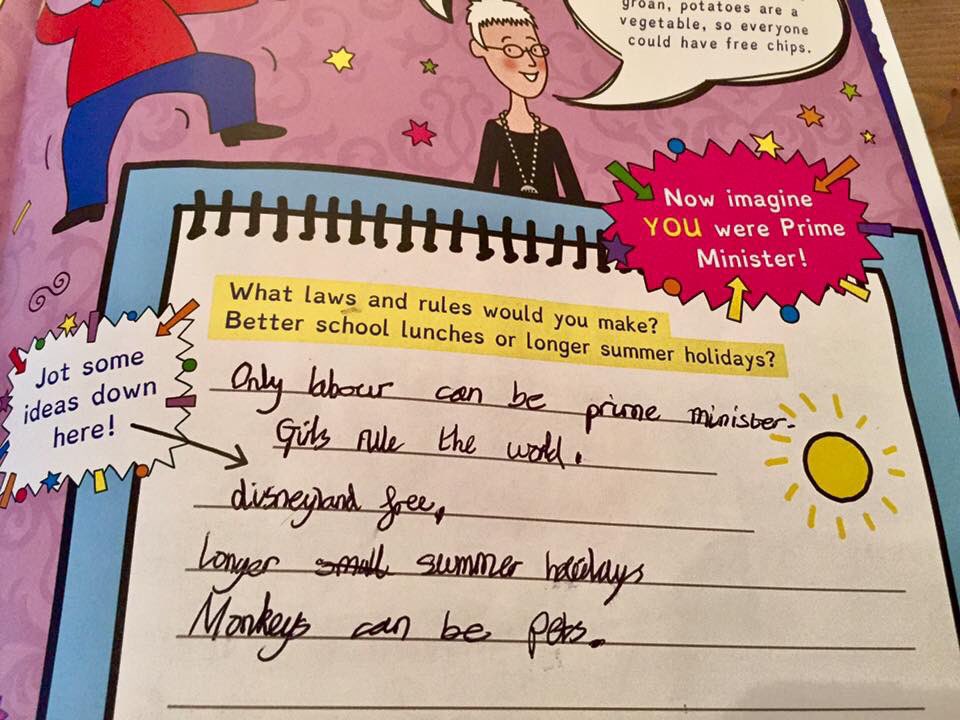 groan, potatoes are a
vegetable, so everyone
could have free chips.
Now imagine
YOU were Prime
Minister!
What laws and rules would you make?
Better school lunches or longer summer holidays?
Jot some
ideas down
here!
Only labour can be prime minister.
Girls rule the world.
disneyland free,
Longer small summer holidays
Monkeys can be pets.